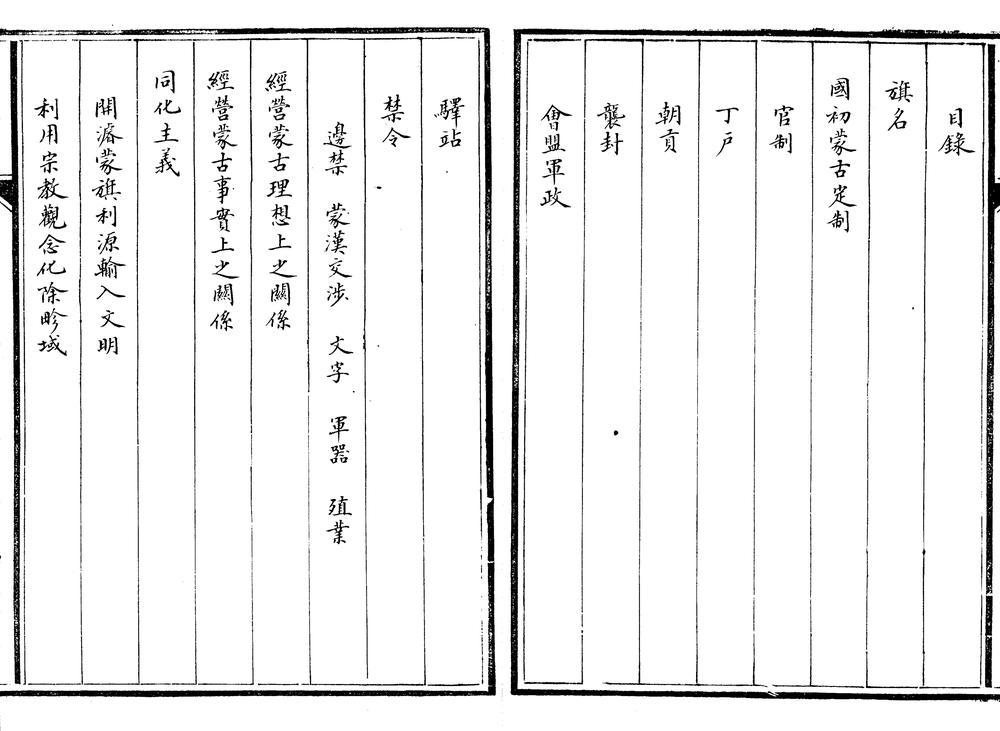 目錄
旗名
國初蒙古定制
官制
丁戶
朝貢
襲封
會盟軍政
驛站
禁令
邊禁 蒙漢交涉 文字 軍器 殖業
經營蒙古理想上之關係
經營蒙古事實上之關係
同化主義
開濬蒙旗利源輸入文明
利用宗教觀念化除畛域